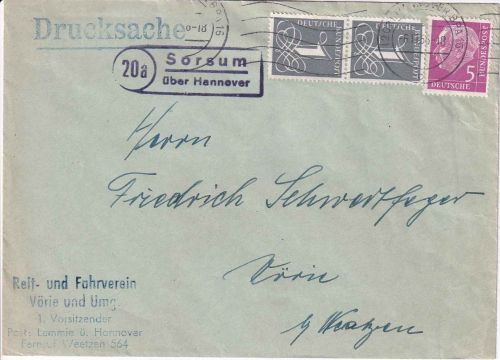 Drucksache
20a
Sorsum
über Hannover
1
DEUTSCHE
BUNDESPOST
1
DEUTSCHE
BUNDESPOST
5
DEUTSCHE
BUNDESPOST
Herrn
Friedrich Schwertfeger
Vörie
b/ Weetzen
Reit- und Fahrverein
Vörie und Umg.
1. Vorsitzender
Post: Lemmie ü. Hannover
Fernruf Weetzen 564